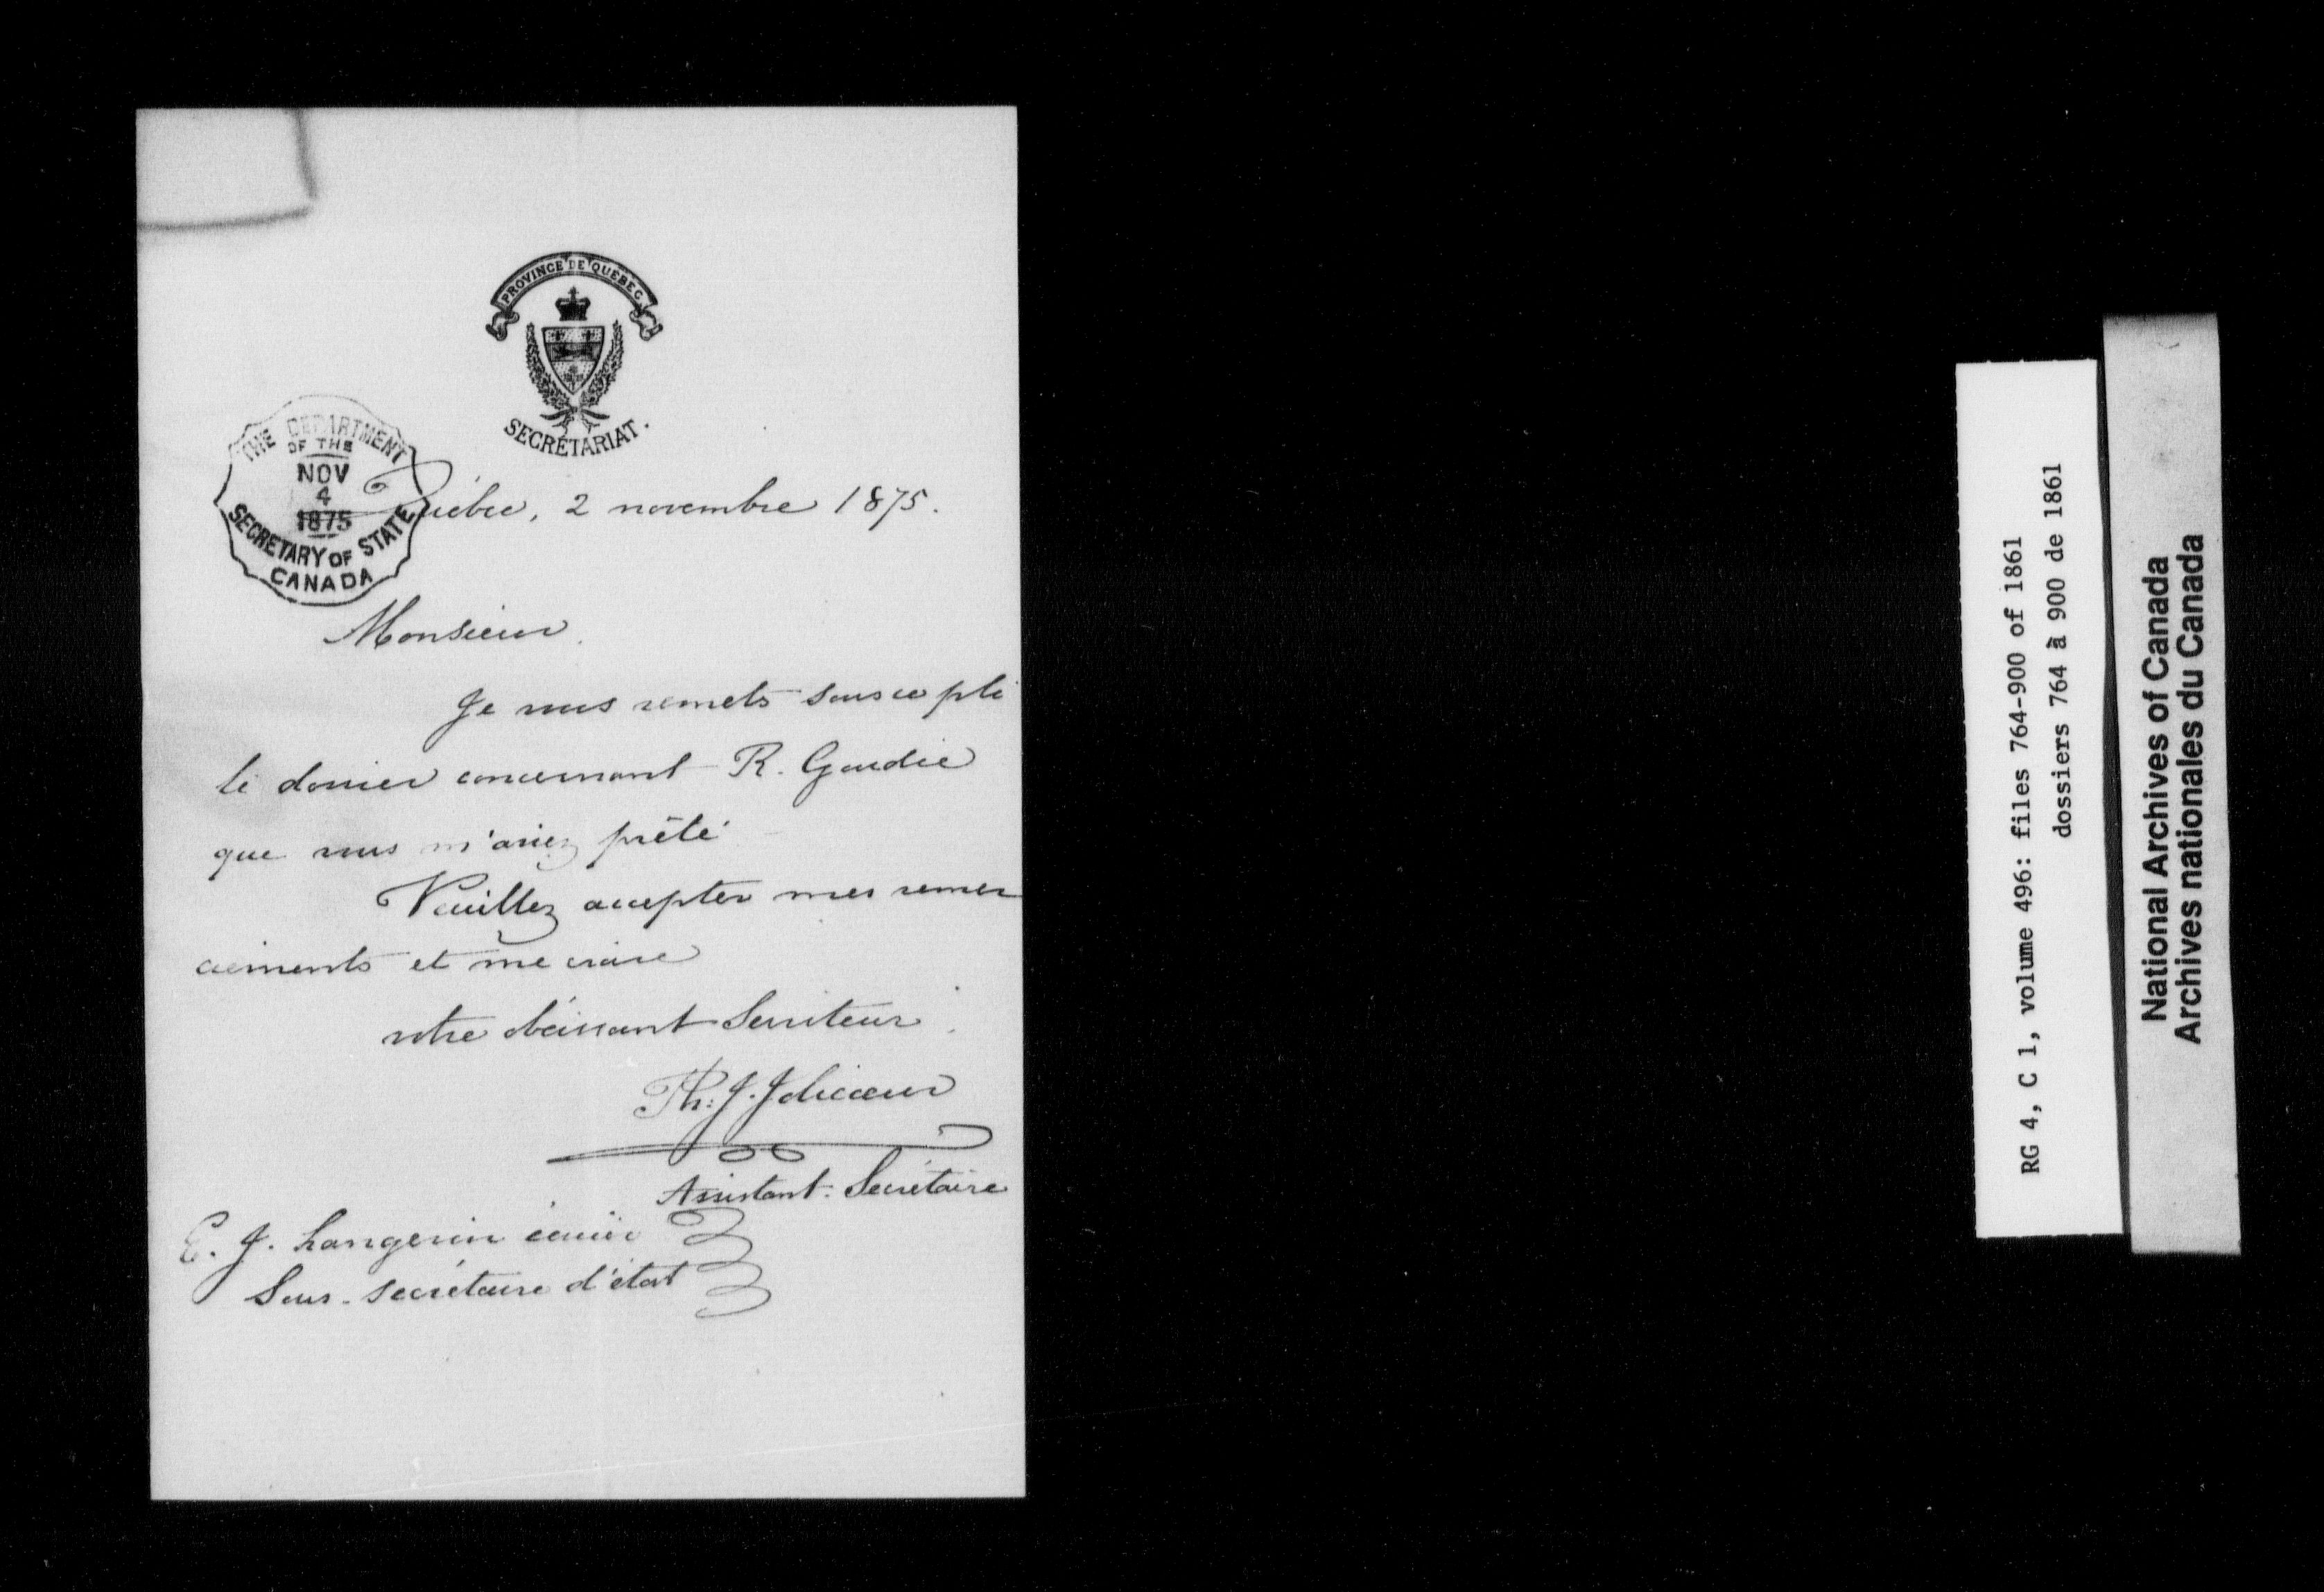 PROVINCE DE QUÉBEC
SECRÉTARIAT.
THE DEPARTMENT
OF THE
NOV
4
1875
SECRETARY OF STATE
CANADA
Québec, 2 novembre 1875.
Monsieur
Je vous remets sous ce pli
le dossier concernant R. Goudie
que vous m'aviez prêté
Veuillez accepter mes remer
ciements et me croire
votre obéissant Serviteur
Th: J. Jolicoeur
Assistant-Secrétaire
E. J. Langevin écuier
Sous-secrétaire d'état
RG 4, C 1, volume 496: files 764-900 of 1861
dossiers 764 à 900 de 1861
National Archives of Canada
Archives nationales du Canada